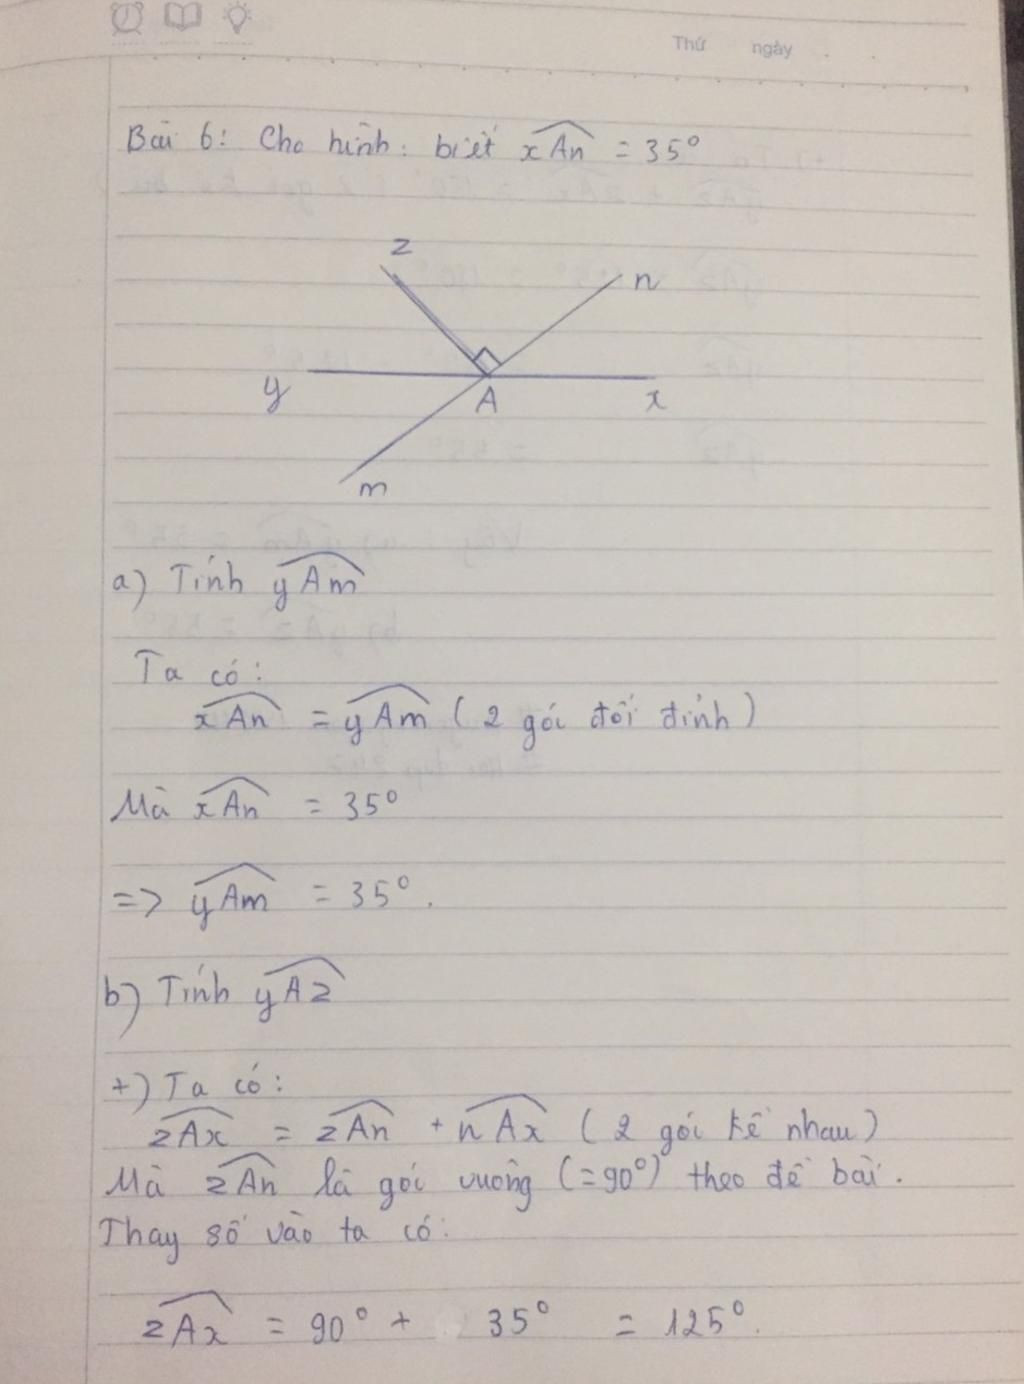 Thứ ngày
Bài 6: Cho hình: biết xAn = 35°
z
n
y
A
x
m
a) Tính yAm
Ta có:
xAn = yAm (2 gói đối đỉnh)
Mà xAn = 35°
=> yAm = 35°.
b) Tính yAz
+) Ta có:
zAx = zAn + nAx (2 gói kề nhau)
Mà zAn là gói vuông (=90°) theo đề bài.
Thay số vào ta có:
zAx = 90° + 35° = 125°.